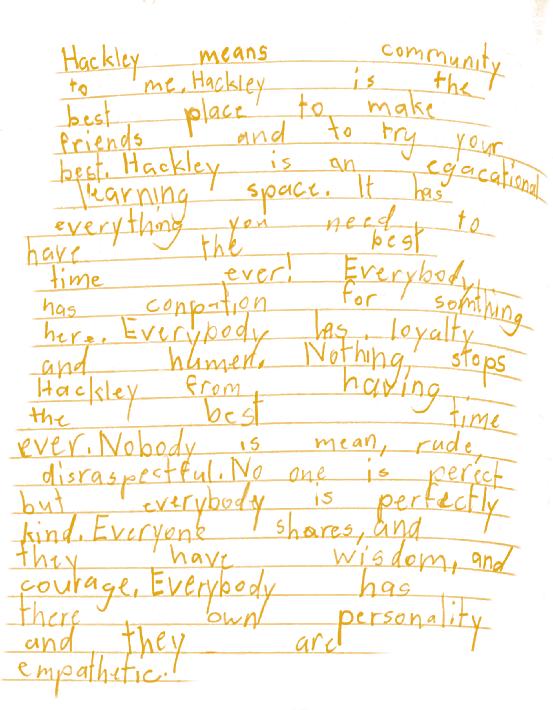 Hackley means community
to me. Hackley is the
best place to make
friends and to try your
best. Hackley is an egacational
learning space. It has
everything you need to
have the best
time ever! Everybody
has conpation for somthing
here. Everybody has loyalty
and humer. Nothing stops
Hackley from having
the best time
ever. Nobody is mean, rude,
disraspectful. No one is perect
but everybody is perfectly
kind. Everyone shares, and
they have wisdom, and
courage. Everybody has
there own personality
and they are
empathetic.